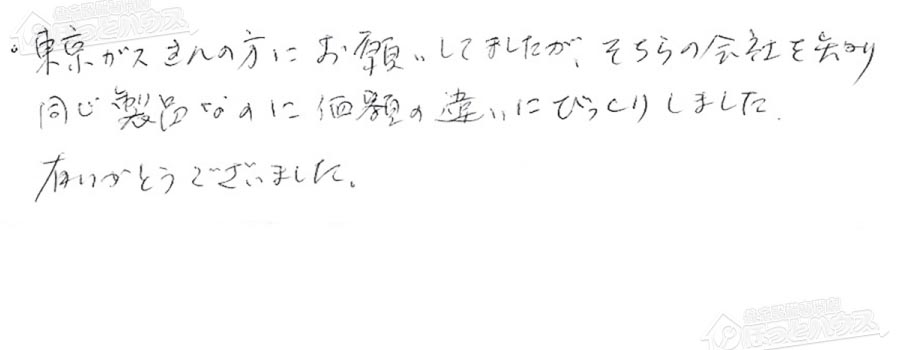 。東京ガスさんの方にお願いしてましたが、そちらの会社を知り
同じ製品なのに価額の違いにびっくりしました.
有いがとうございました。
ほっとハウス
ほっとハウス